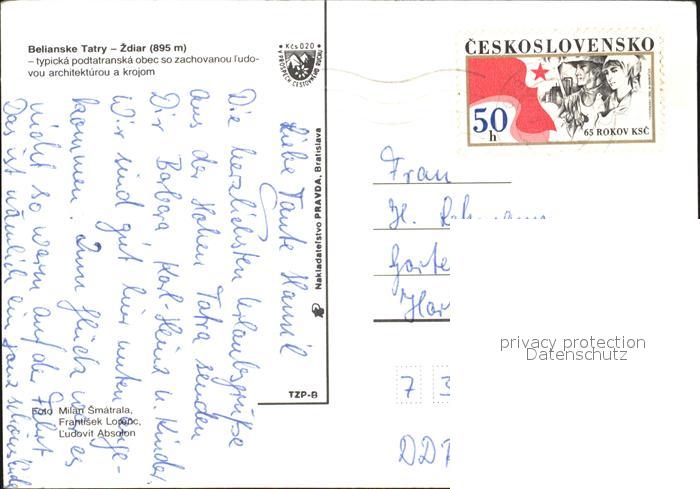 Belianske Tatry – Ždiar (895 m)
– typická podtatranská obec so zachovanou ľudo-
vou architektúrou a krojom
Kčs 0,20
V PROSPECH CESTOVNÉHO RUCHU
ČESKOSLOVENSKO
50 h
65 ROKOV KSČ
Liebe Tante Hannil
Die herzlichsten Urlaubsgrüße
aus der Hohen Tatra senden
Dir Barbara Karl-Heinz u. Kinder.
Wir sind gut hier unten ange-
kommen. Zum Glück war es
nicht so warm auf der Fahrt
Das ist nämlich ein ganz schönes Ende
Nakladateľstvo PRAVDA, Bratislava
TZP-B
Foto Milan Šmátrala,
František Lorenc,
Ľudovít Absolon
Frau
H.
Garte
Har
7 3
DDR
privacy protection
Datenschutz